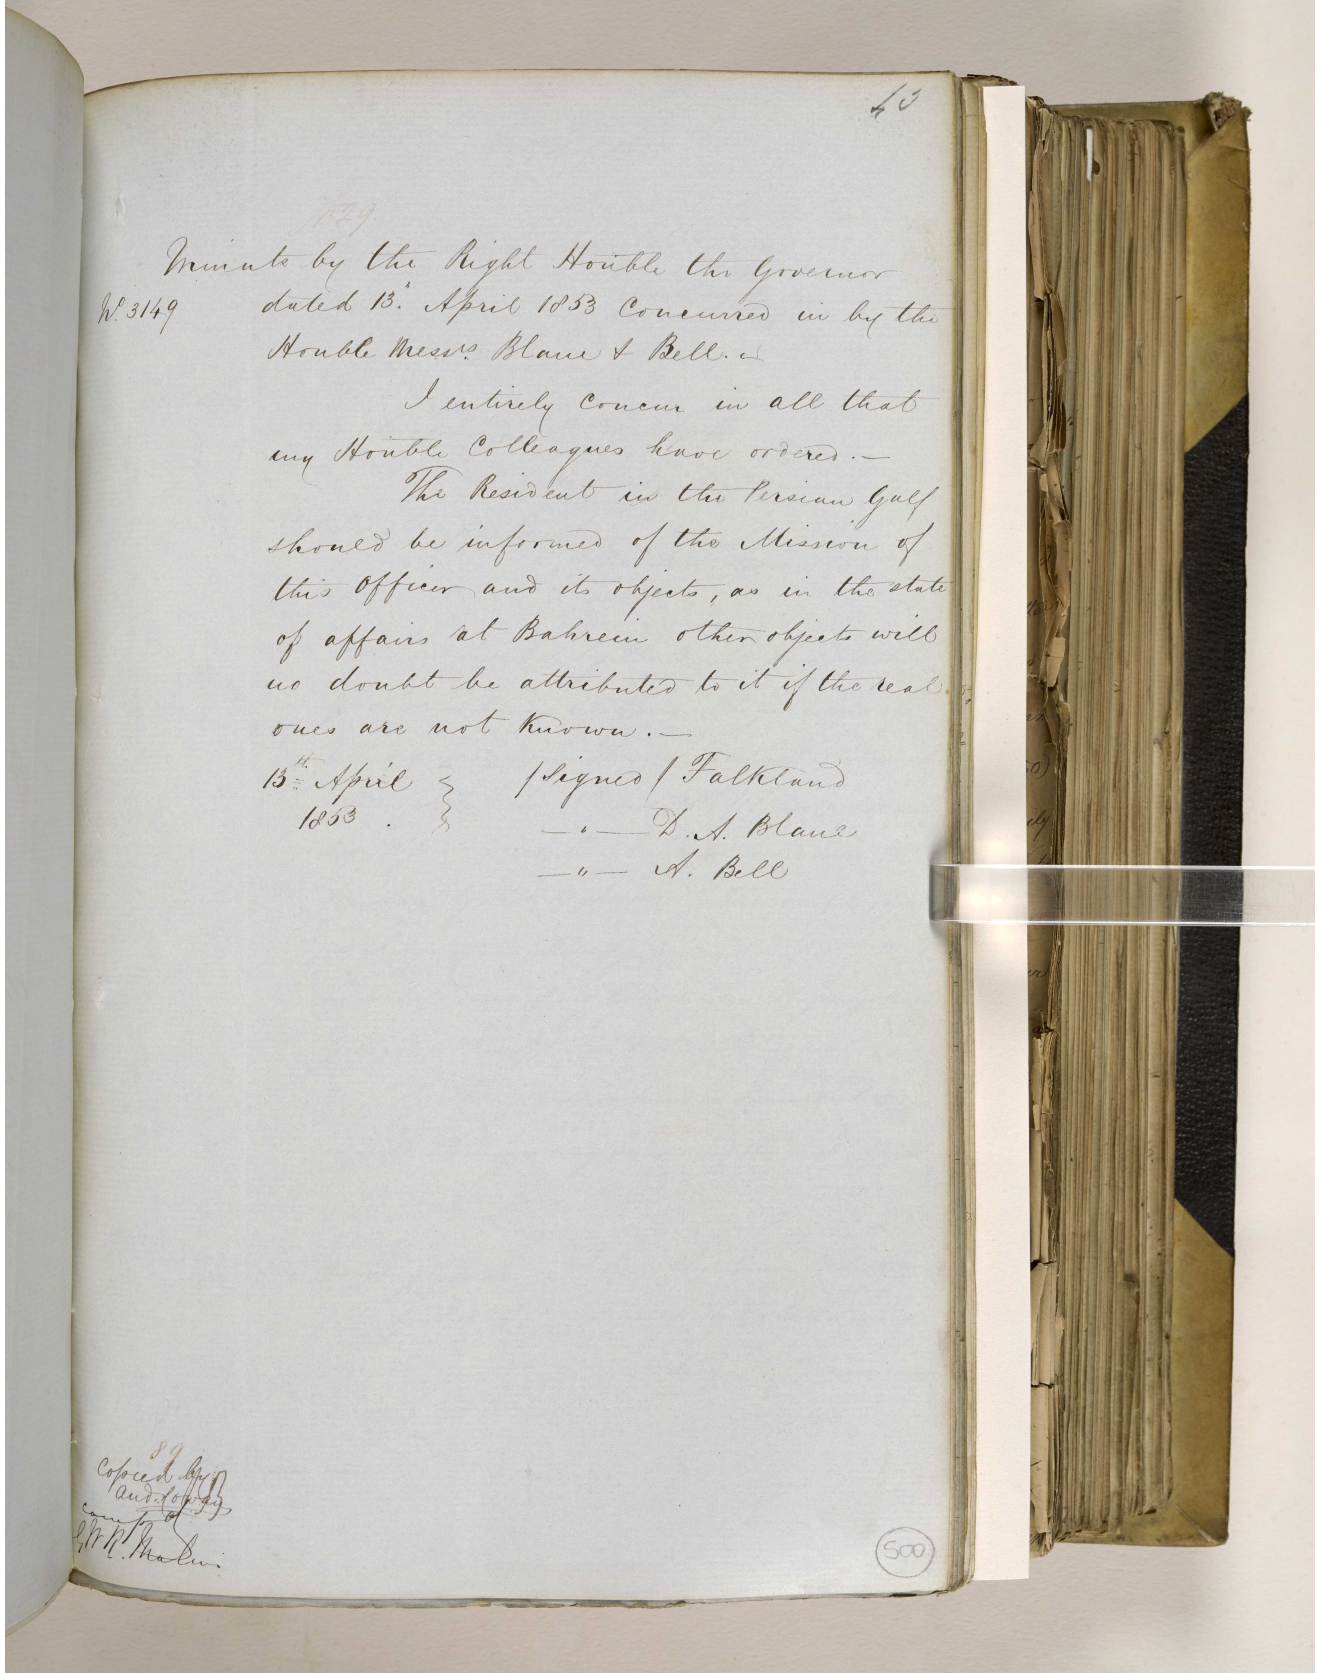 43
129.
Minute by the Right Honble the Governor
No. 3149 dated 13th April 1853 Concurred in by the
Honble Messrs. Blane & Bell. —
I entirely concur in all that
my Honble Colleagues have ordered. —
The Resident in the Persian Gulf
should be informed of the Mission of
this Officer and its objects, as in the state
of affairs at Bahrein other objects will
no doubt be attributed to it if the real
ones are not known. —
13th April /Signed/ Falkland
1853. — " — D. A. Blane
— " — A. Bell
89
Copied by
And.
compd
500